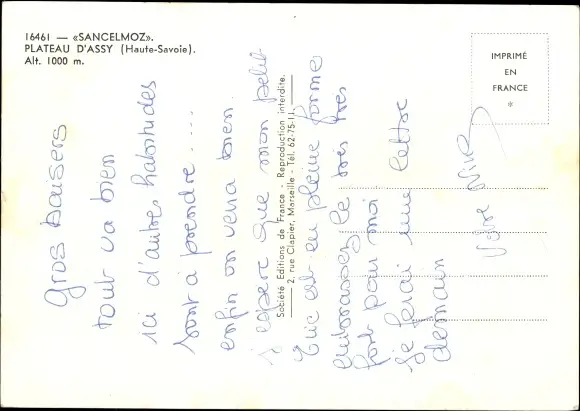 16461 — «SANCELMOZ».
PLATEAU D'ASSY (Haute-Savoie).
Alt. 1000 m.
IMPRIMÉ
EN
FRANCE
*
Société Editions de France - Reproduction interdite.
2, rue Clapier, Marseille - Tél. 62-75-11.
Gros baisers
tout va bien
ici d'autres habitudes
sont à prendre .....
enfin on verra bien.
j'espère que mon petit
Eric est en pleine forme
embrassez le très très
fort pour moi
je ferai une lettre
demain
Votre